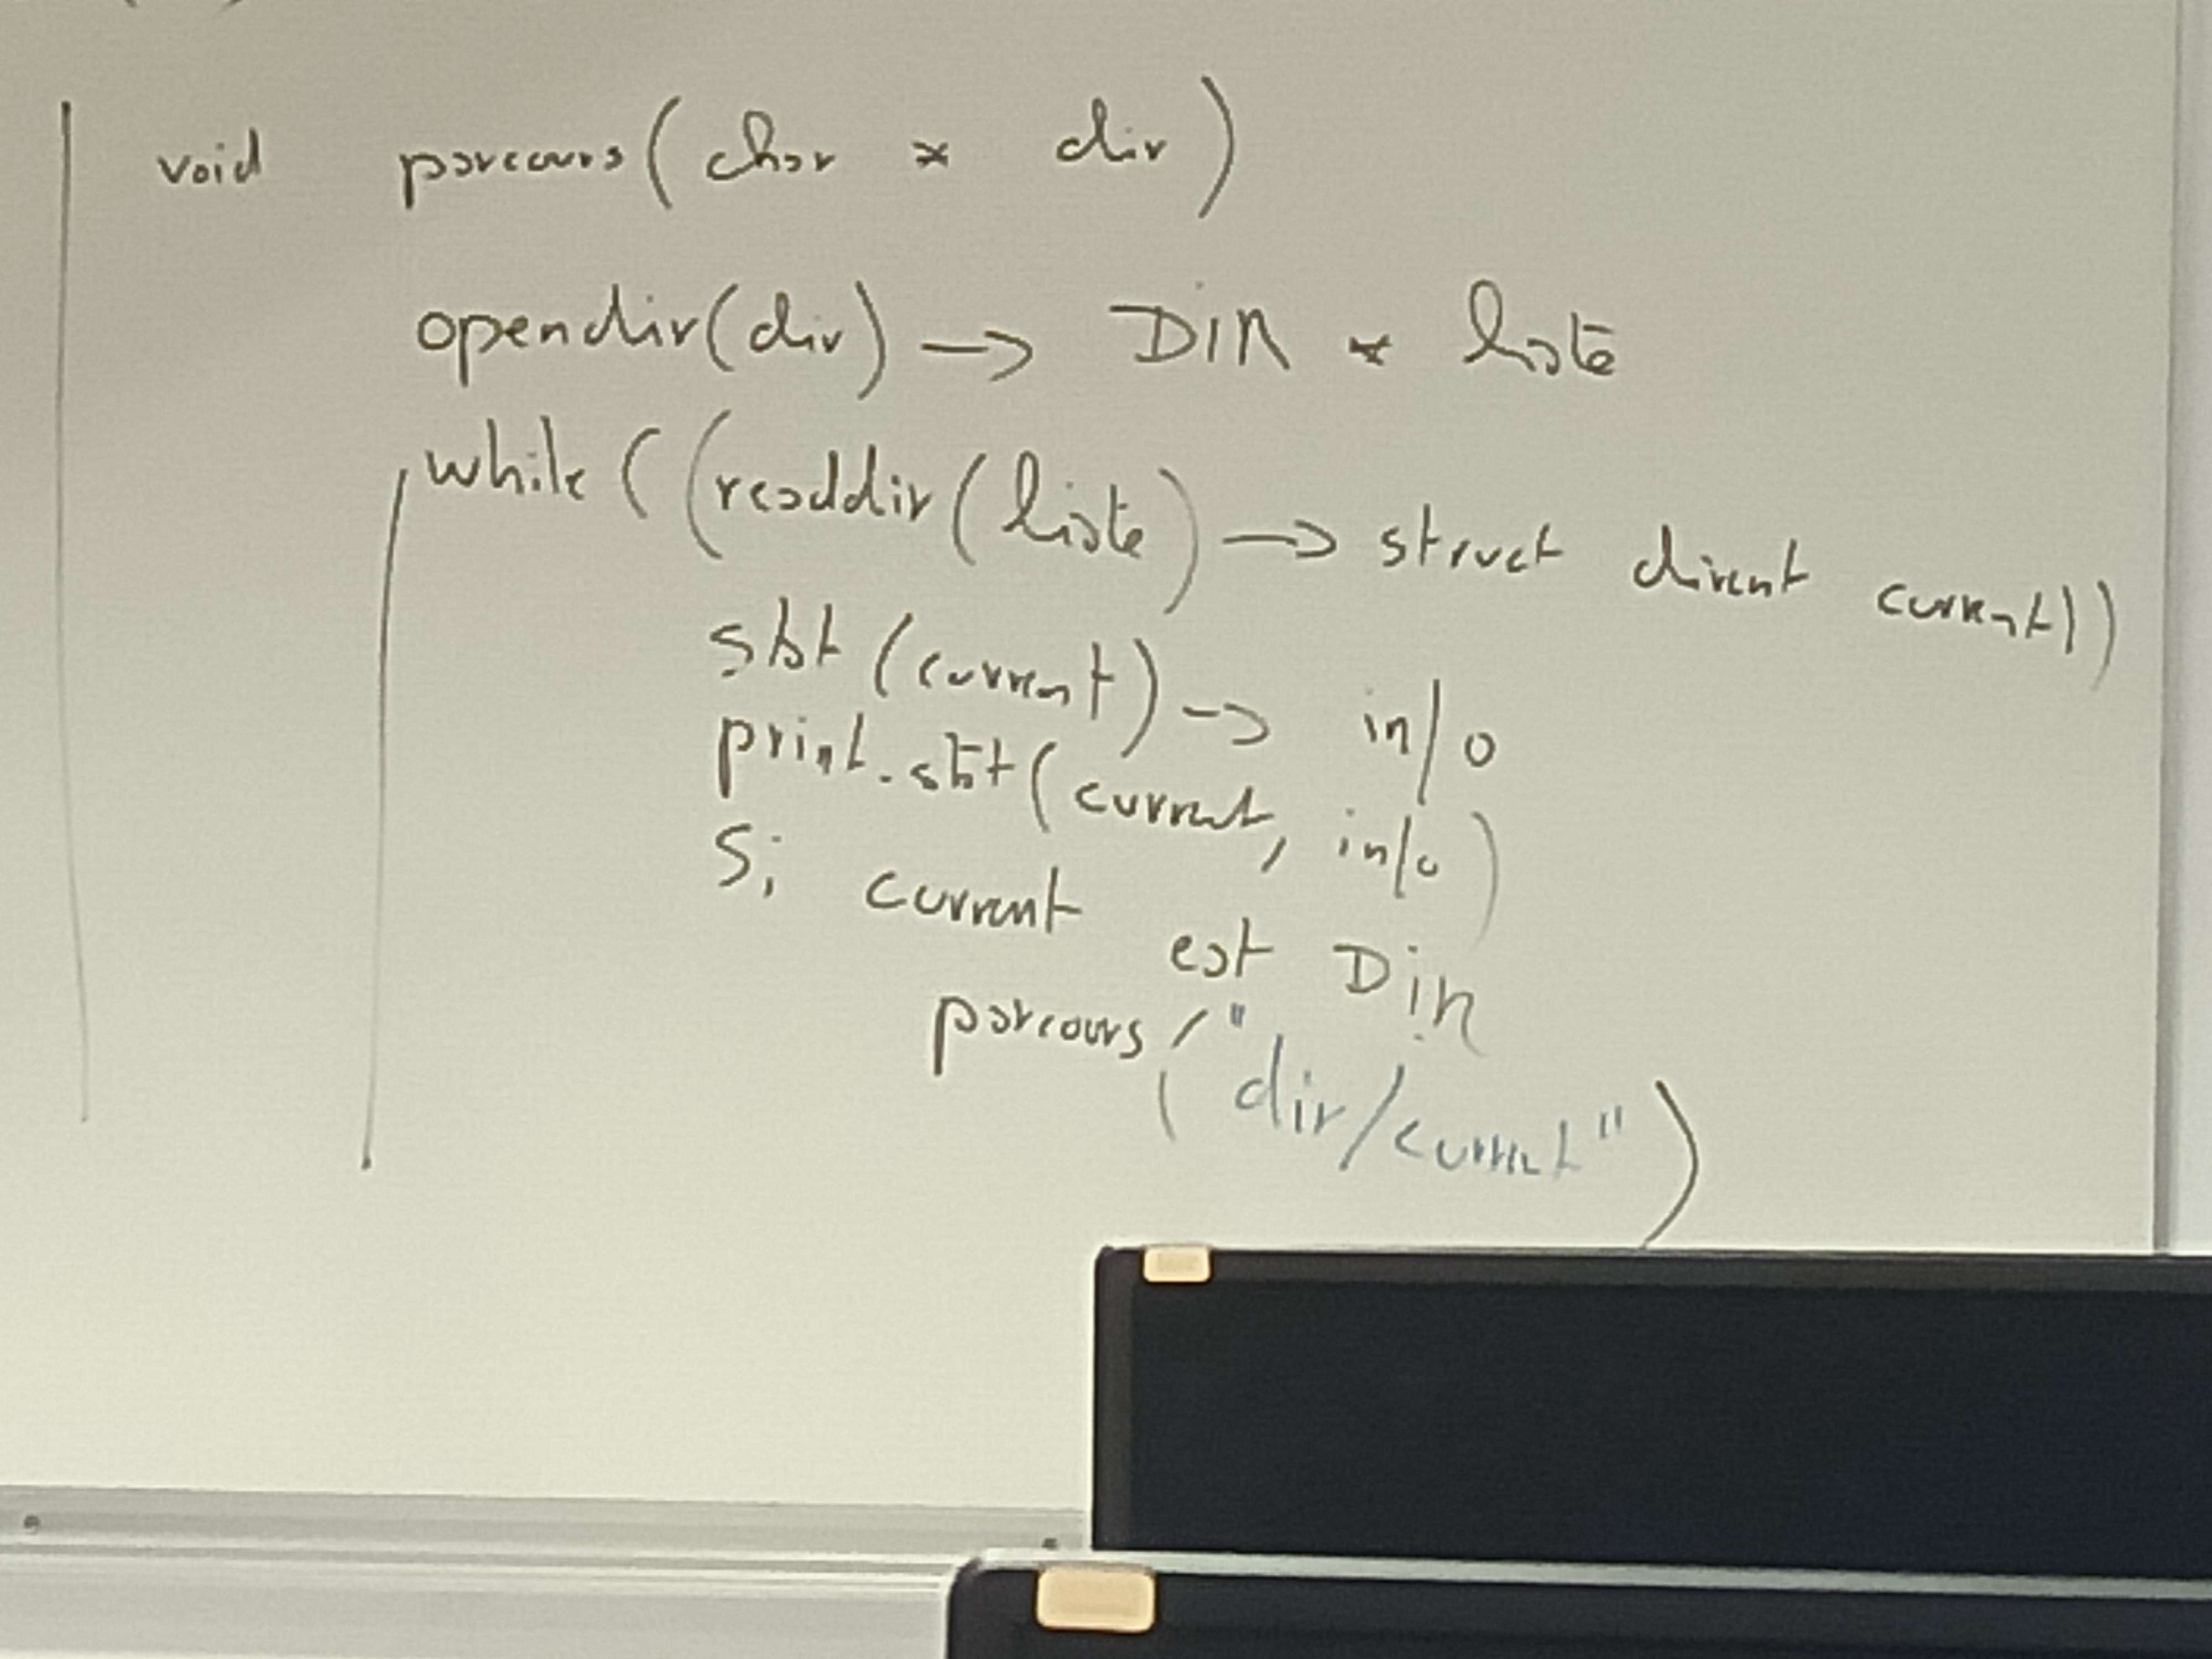 void parcours(char * dir)
opendir(dir) → DIR * liste
while ((readdir(liste) → struct dirent current))
stat (current) → info
print_stat(current, info)
Si current est DIR
parcours ("dir/current")